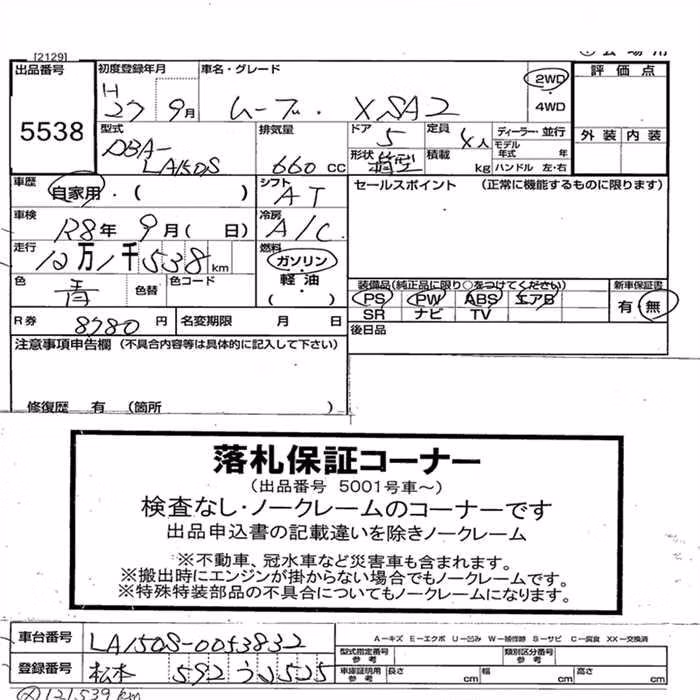 [2129]
出品番号 初度登録年月 車名・グレード 2WD 評価点
H 27 9月 ムーブ・XSA2 4WD
5538 型式 排気量 ドア 5 定員 4人 ディーラー・並行 外装 内装
DBA-LA150S 660 CC 形状 箱型 積載 kg モデル年式 年 ハンドル 左・右
車歴 自家用・( ) シフト AT セールスポイント (正常に機能するものに限ります)
車検 R8年 9月( 日) 冷房 A/C
走行 12万1千538km 燃料 ガソリン 軽油 ( )
色 青 色替 色コード 装備品(純正品に限り○をつけてください) 新車保証書
PS PW ABS エアB 有・無
R券 8780円 名変期限 月 日 SR ナビ TV
注意事項申告欄 (不具合内容等は具体的に記入して下さい) 後日品
修復歴 有 (箇所 )
落札保証コーナー
(出品番号 5001号車~)
検査なし・ノークレームのコーナーです
出品申込書の記載違いを除きノークレーム
※不動車、冠水車など災害車も含まれます。
※搬出時にエンジンが掛からない場合でもノークレームです。
※特殊特装部品の不具合についてもノークレームになります。
車台番号 LA150S-0053832 A-キズ E-エクボ U-凹み W-補修跡 S-サビ C-腐食 XX-交換済
型式指定番号 参考 類別区分番号 参考
登録番号 松本 592 う 3525 車庫証明用 参考 長さ cm 幅 cm 高さ cm
121,539 km